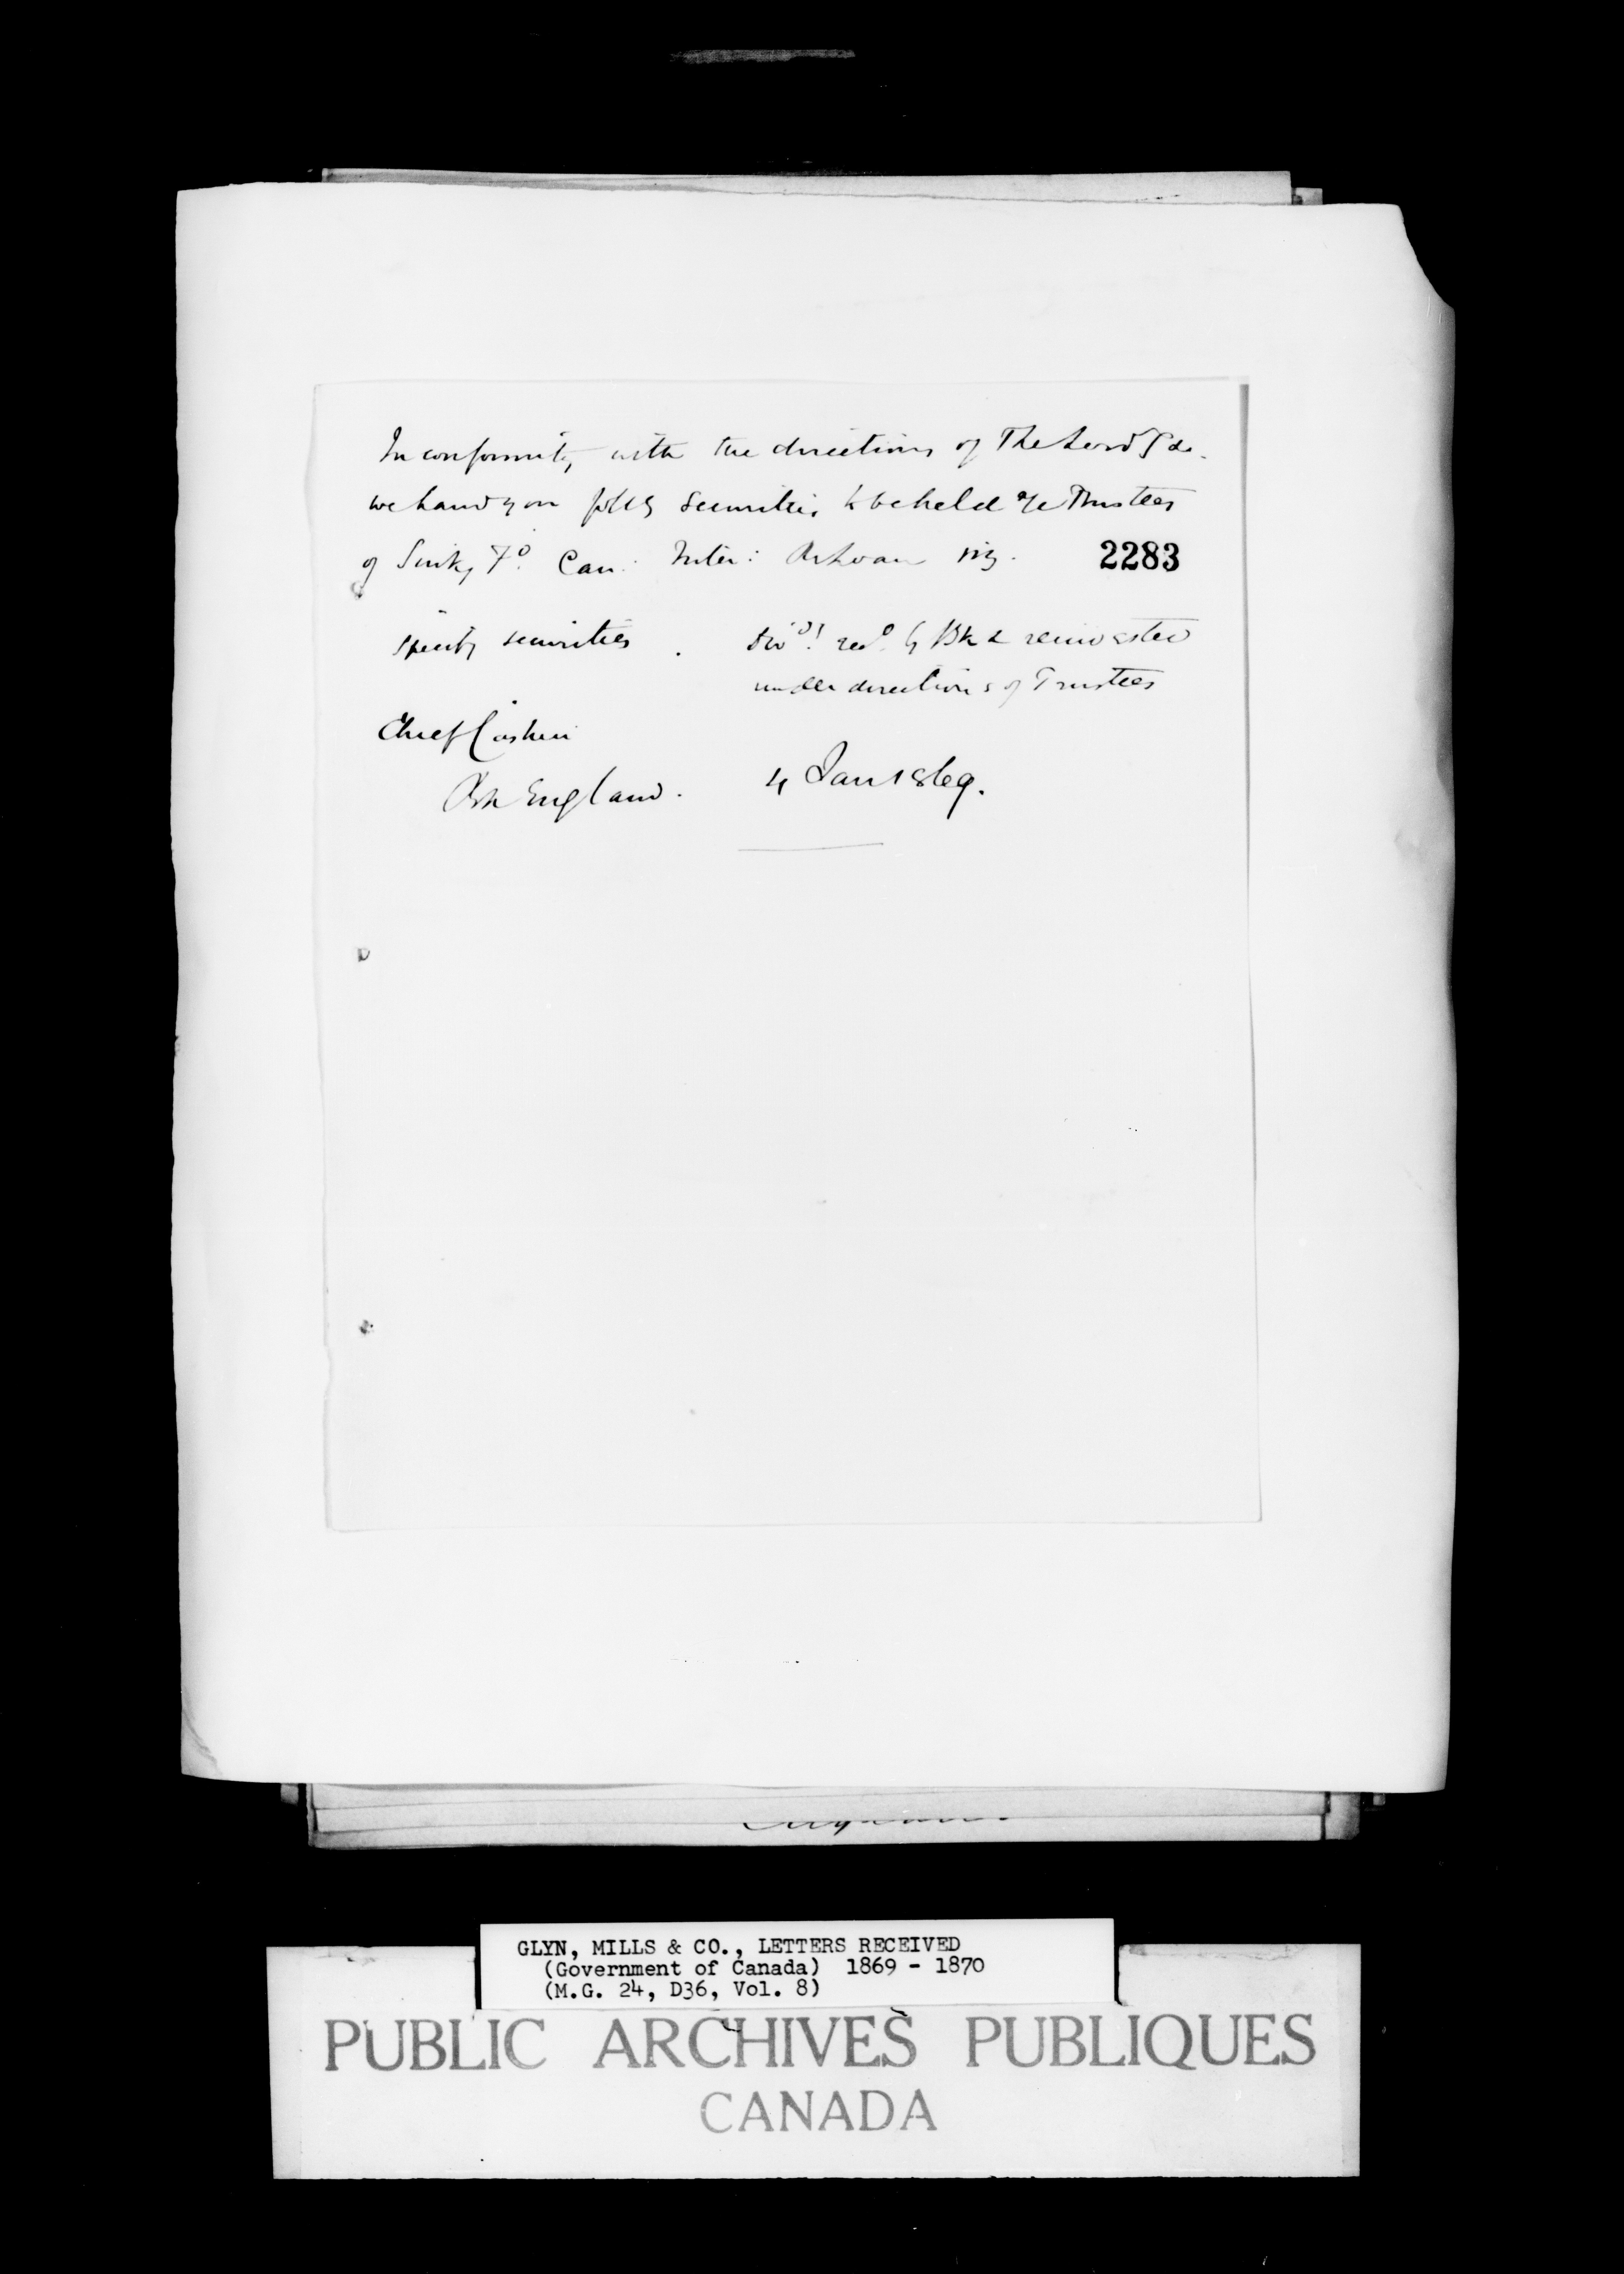 In conformity with the directions of The Lords &c.
we hand you follg securities to be held a/c Trustees
of Sinkg Fd. Can: Inter: Loan viz. 2283
specify securities. Divds. recd. by Bk & reinvested
under directions of Trustees
Chief Cashier
Bk England. 4 Jan 1869.
GLYN, MILLS & CO., LETTERS RECEIVED
(Government of Canada) 1869 - 1870
(M.G. 24, D36, Vol. 8)
PUBLIC ARCHIVES PUBLIQUES
CANADA